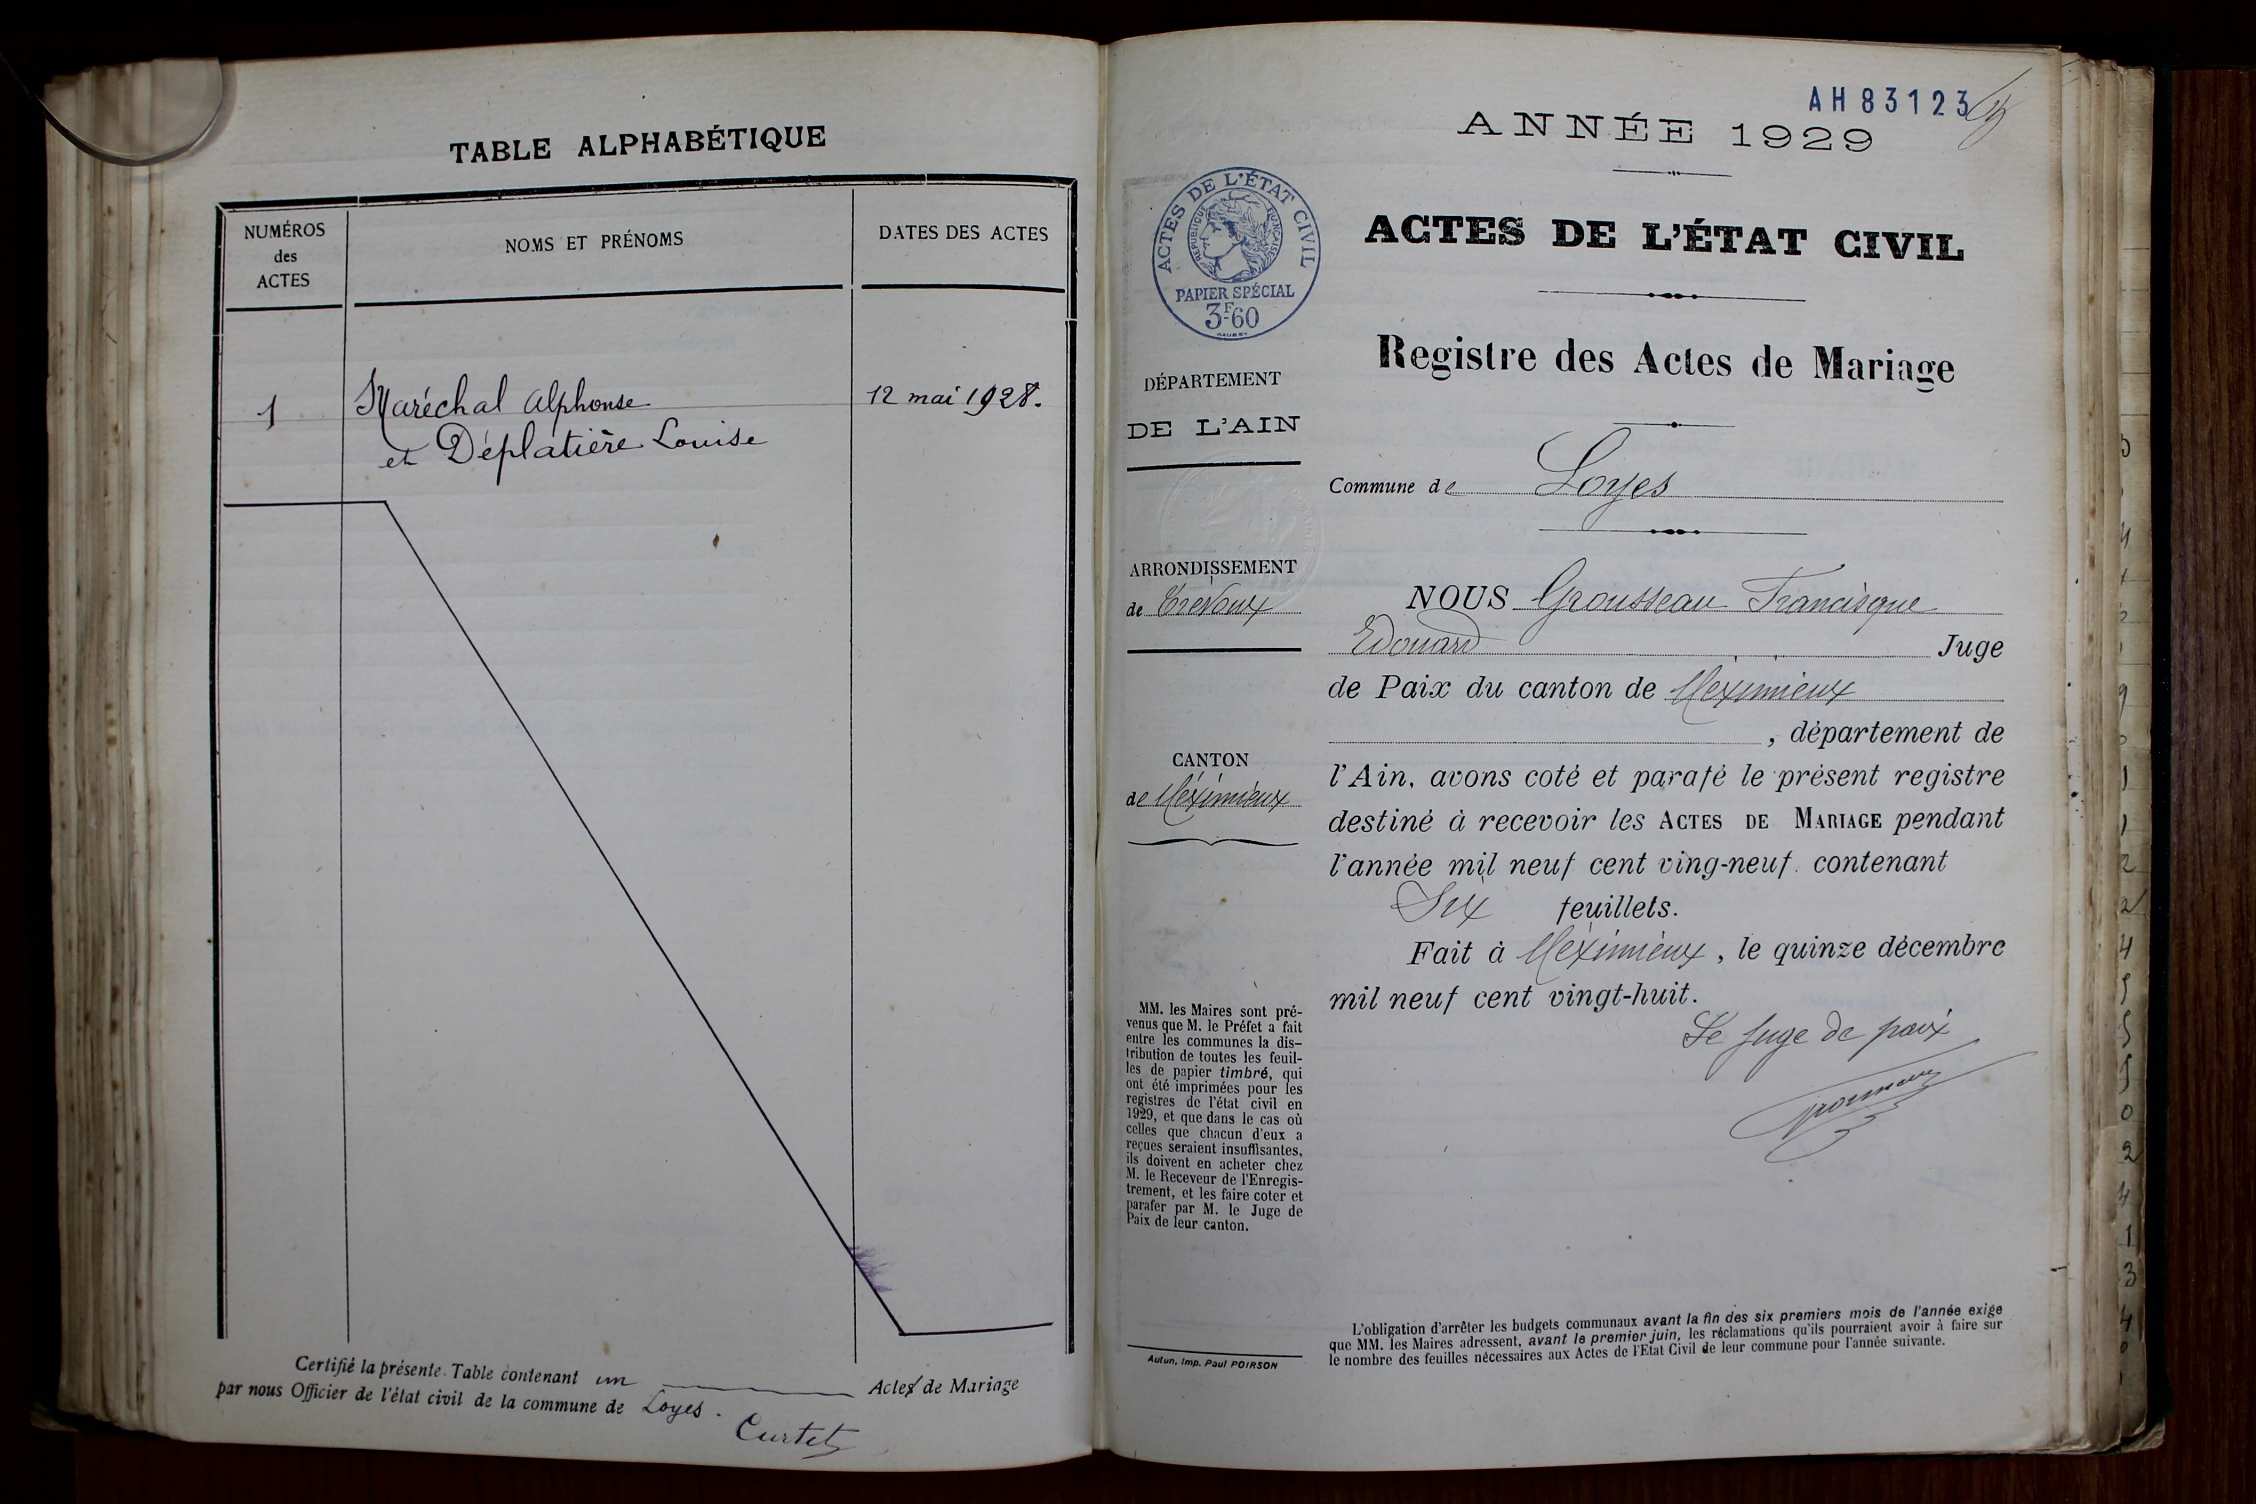 TABLE ALPHABÉTIQUE
NUMÉROS
des
ACTES
NOMS ET PRÉNOMS
DATES DES ACTES
1
Maréchal Alphonse
12 mai 1928.
et Déplatière Louise
Certifié la présente Table contenant un
Actes de Mariage
par nous Officier de l'état civil de la commune de Loyes.
Curtet
AH 83123
ANNÉE 1929
ACTES DE L'ÉTAT CIVIL
RÉPUBLIQUE FRANÇAISE
PAPIER SPÉCIAL
3F60
ACTES DE L'ÉTAT CIVIL
Registre des Actes de Mariage
DÉPARTEMENT
DE L'AIN
Commune de Loyes
ARRONDISSEMENT
de Trévoux
CANTON
de Méximieux
NOUS Grousseau Francisque
Edouard Juge
de Paix du canton de Méximieux
, département de
l'Ain, avons coté et parafé le présent registre
destiné à recevoir les ACTES DE MARIAGE pendant
l'année mil neuf cent ving-neuf contenant
Six feuillets.
Fait à Méximieux, le quinze décembre
mil neuf cent vingt-huit.
Le Juge de paix
MM. les Maires sont pré-
venus que M. le Préfet a fait
entre les communes la dis-
tribution de toutes les feuil-
les de papier timbré, qui
ont été imprimées pour les
registres de l'état civil en
1929, et que dans le cas où
celles que chacun d'eux a
reçues seraient insuffisantes,
ils doivent en acheter chez
M. le Receveur de l'Enregis-
trement, et les faire coter et
parafer par M. le Juge de
Paix de leur canton.
Autun, Imp. Paul POIRSON
L'obligation d'arrêter les budgets communaux avant la fin des six premiers mois de l'année exige
que MM. les Maires adressent, avant le premier juin, les réclamations qu'ils pourraient avoir à faire sur
le nombre des feuilles nécessaires aux Actes de l'Etat Civil de leur commune pour l'année suivante.